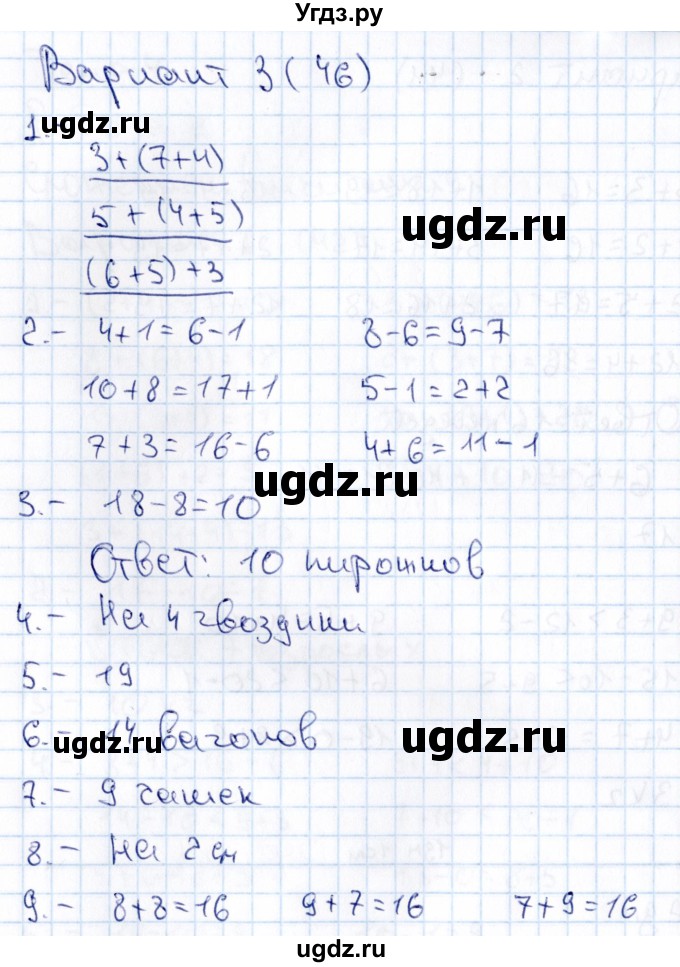 Угдз.ру
Вариант 3 (46)
1.
ugdz.ru
3+(7+4)
5+(4+5)
ugdz.ru
(6+5)+3
2.- 4+1=6-1 8-6=9-7
10+8=17+1 5-1=2+2
7+3=16-6 4+6=11-1
ugdz.ru
3.- 18-8=10
Ответ: 10 пирожков
4.- На 4 гвоздики
5.- 19
6.- 14 вагонов
ugdz.ru ugdz.ru
7.- 9 чашек
8.- На 2 см
9.- 8+8=16 9+7=16 7+9=16
ugdz.ru